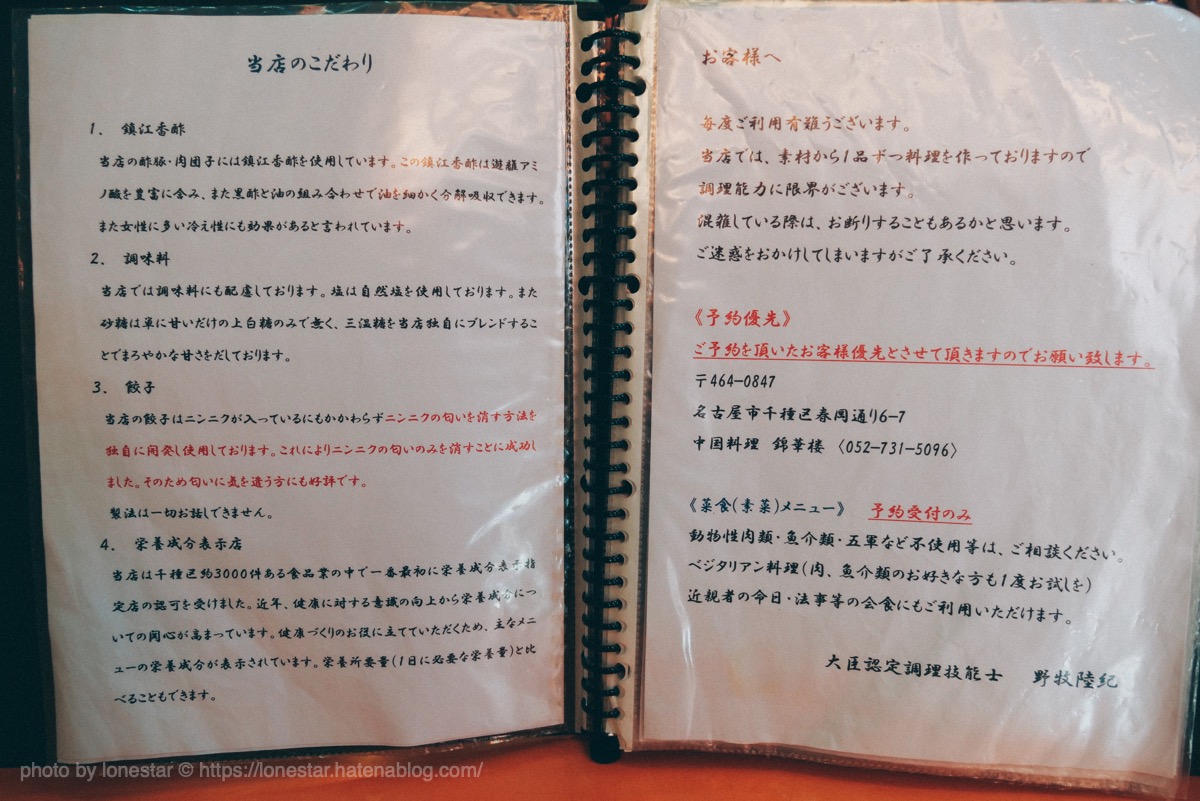 当店のこだわり
1. 鎮江香酢
当店の酢豚・肉団子には鎮江香酢を使用しています。この鎮江香酢は遊離アミ
ノ酸を豊富に含み、また黒酢と油の組み合わせで油を細かく分解吸収できます。
また女性に多い冷え性にも効果があると言われています。
2. 調味料
当店では調味料にも配慮しております。塩は自然塩を使用しております。また
砂糖は単に甘いだけの上白糖のみで無く、三温糖を当店独自にブレンドするこ
とでまろやかな甘さをだしております。
3. 餃子
当店の餃子はニンニクが入っているにもかかわらずニンニクの匂いを消す方法を
独自に開発し使用しております。これによりニンニクの匂いのみを消すことに成功し
ました。そのため匂いに気を遣う方にも好評です。
製法は一切お話しできません。
4. 栄養成分表示店
当店は千種区約3000件ある食品業の中で一番最初に栄養成分表示指
定店の認可を受けました。近年、健康に対する意識の向上から栄養成分につ
いての関心が高まっています。健康づくりのお役に立てていただくため、主なメニ
ューの栄養成分が表示されています。栄養所要量(1日に必要な栄養量)と比
べることもできます。
お客様へ
毎度ご利用有難うございます。
当店では、素材から1品ずつ料理を作っておりますので
調理能力に限界がございます。
混雑している際は、お断りすることもあるかと思います。
ご迷惑をおかけしてしまいますがご了承ください。
《予約優先》
ご予約を頂いたお客様優先とさせて頂きますのでお願い致します。
〒464-0847
名古屋市千種区春岡通り6-7
中国料理 錦華楼 〈052-731-5096〉
《菜食(素菜)メニュー》 予約受付のみ
動物性肉類・魚介類・五軍など不使用等は、ご相談ください。
ベジタリアン料理(肉、魚介類のお好きな方も1度お試しを)
近親者の今日・法事等の会食にもご利用いただけます。
大臣認定調理技能士 野牧陸紀
photo by lonestar © https://lonestar.hatenablog.com/